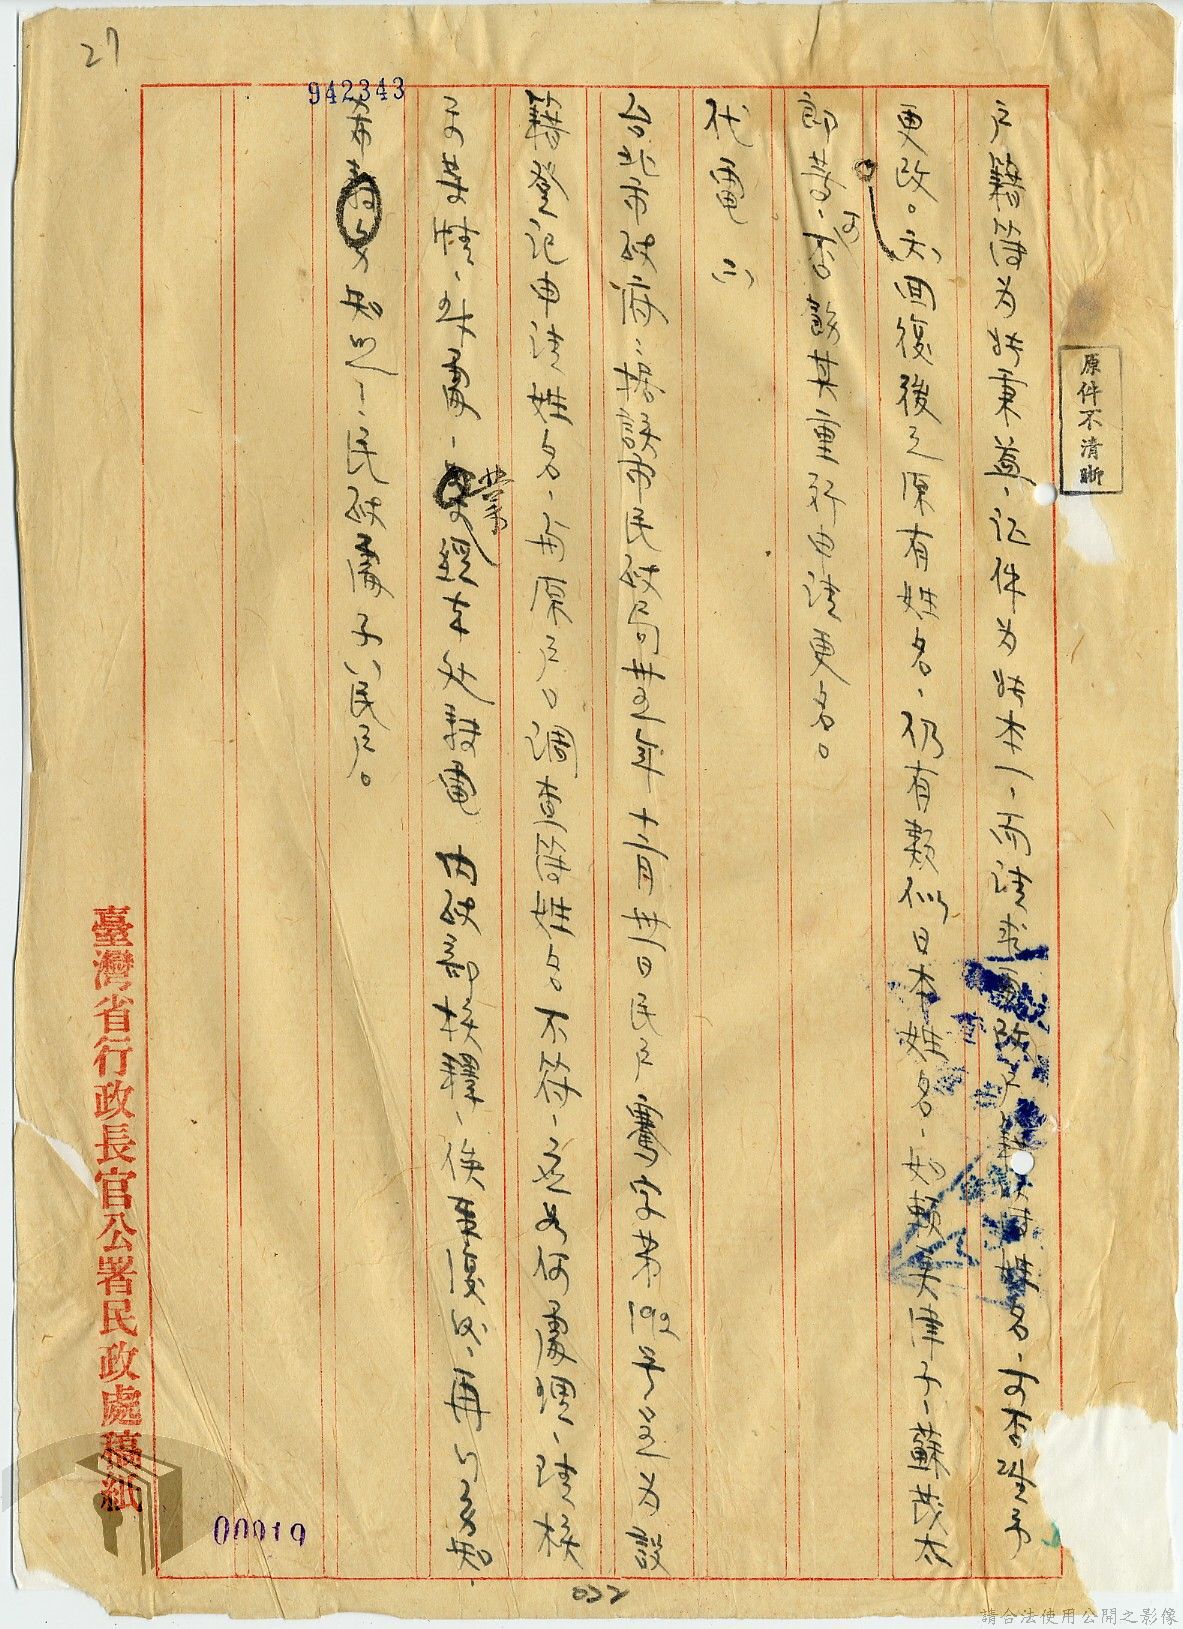 27
942343
原件不清晰
戶籍簿為林秉益，证件為林本一，而请求更改戶籍簿姓名，可否准予
更改。2.回復後之原有姓名，仍有類似日本姓名，如賴美津子、蘇茂太
郎等，可否飭其重新申请更名。
代電 (二)
台北市政府：據該市民政局卅五年十一月廿一日民戶 字第192号 為設
籍登记申请姓名，與原戶口调查簿姓名不符，应如何處理，请核
示等情，业經本处轉電 內政部核釋，俟奉復後，再行飭知，
希 知照！民政處 民戶。
臺灣省行政長官公署民政處稿紙
00019
022
請合法使用公開之影像